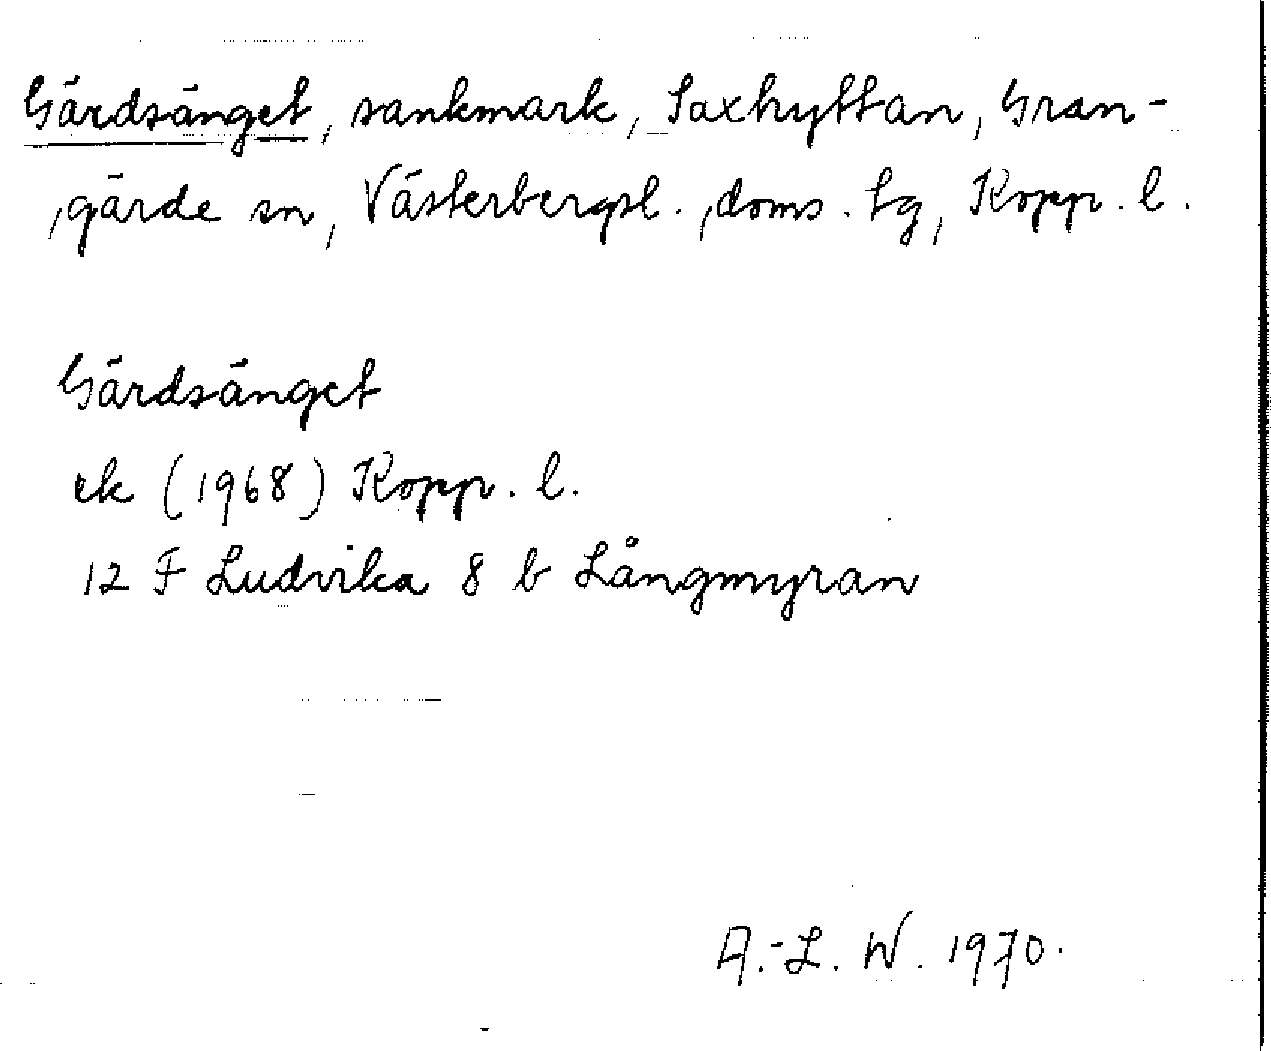 Gärdsänget, sankmark, Saxhyttan, Gran-
gärde sn, Västerbergsl. doms. tg, Kopp. l.
Gärdsänget
ek (1968) Kopp. l.
12 F Ludvika 8 b Långmyran
A.-L. W. 1970.